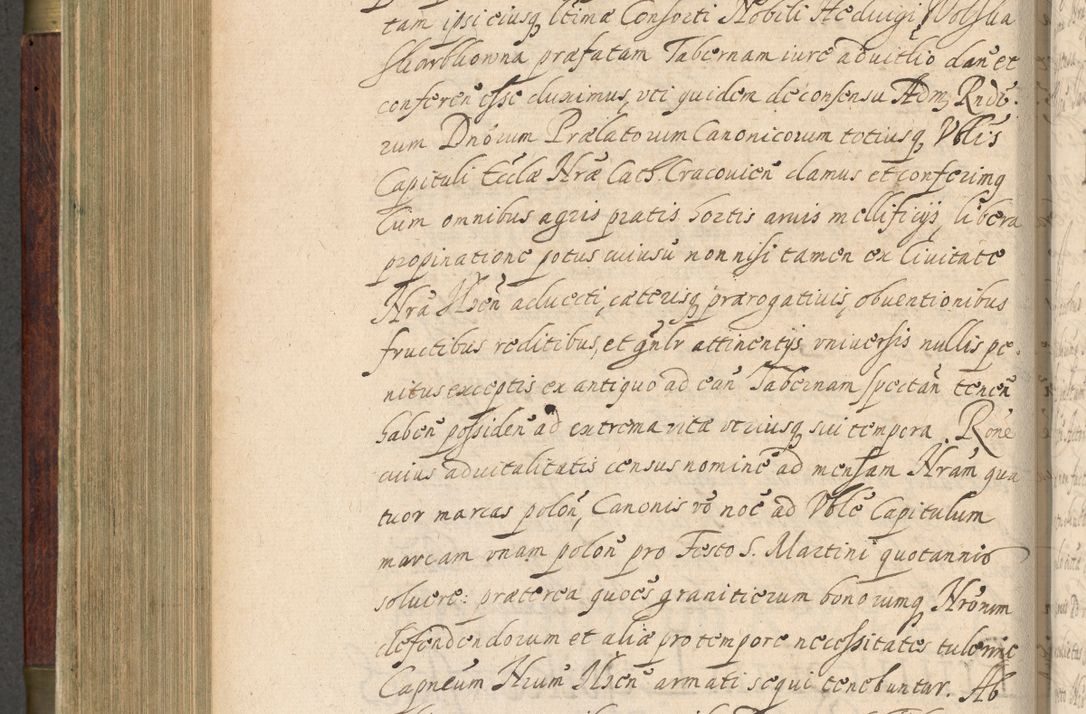 tam ipsi eiusq₃ ltimæ Consorti Nobili Heduigi Volska
Skorbkowna præfatam Tabernam iure aduitlio dan̄ et
conferen̄ esse duximus, vti quidem de consensu Adm₃ Rndō-
rum Dnōrum Prælatorum Canonicorum totiusq₃ Vblis
Capituli Ecclæ Nræ Cath. Cracouien̄ damus et conferimq
Cum omnibus agris pratis hortis aruis mellificijs, libera
propinatione potus cuiusū non nisi tamen ex Ciuitate
Nrā Ilzen̄ aduecti, cæterisq₃ prærogatiuis, obuentionibus
fructibus reditibus, et gnlr attinentijs vniuersis nullis pe-
nitus exceptis ex antiquo ad ean̄ Tabernam spectan̄ tenen̄
haben̄ possiden̄ ad extrema vitæ vtriusq₃ sui tempora. Rōne
cuius aduitalitatis census nomine ad mensam Nram̄ qua
tuor marcas polon̄, Canonis vō noē ad Vble Capitulum
marcam vnam polon̄ pro Festo S. Martini quotannis
soluere: præterea quoēs granitierum bonorumq₃ Nrōrum
defendendorum et aliæ pro tempore necessitates tulerint
Capneum Nrum Ilzen̄ armati sequi tenebuntur. Ab